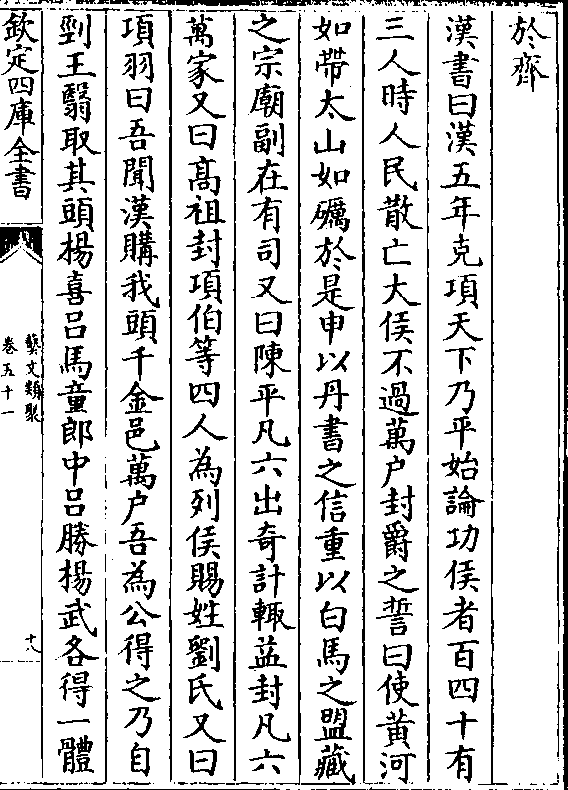 於齊
漢書曰漢五年克項天下乃平始論功侯者百四十有
三人時人民散亡大侯不過萬户封爵之誓曰使黄河
如帶太山如礪於是申以丹書之信重以白馬之盟藏
之宗廟副在有司又曰陳平凡六出奇計輙益封凡六
萬家又曰髙祖封項伯等四人為列侯賜姓劉氏又曰
項羽曰吾聞漢購我頭千金邑萬户吾為公得之乃自
剄王翳取其頭楊喜吕馬童郎中吕勝楊武各得一體
欽定四庫全書
藝文類聚
卷五十一
十八